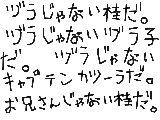 ヅラじゃない桂だ。
ヅラじゃないヅラ子
だ。　ヅラじゃない
キャプテンカツーラだ。
お兄さんじゃない桂だ。